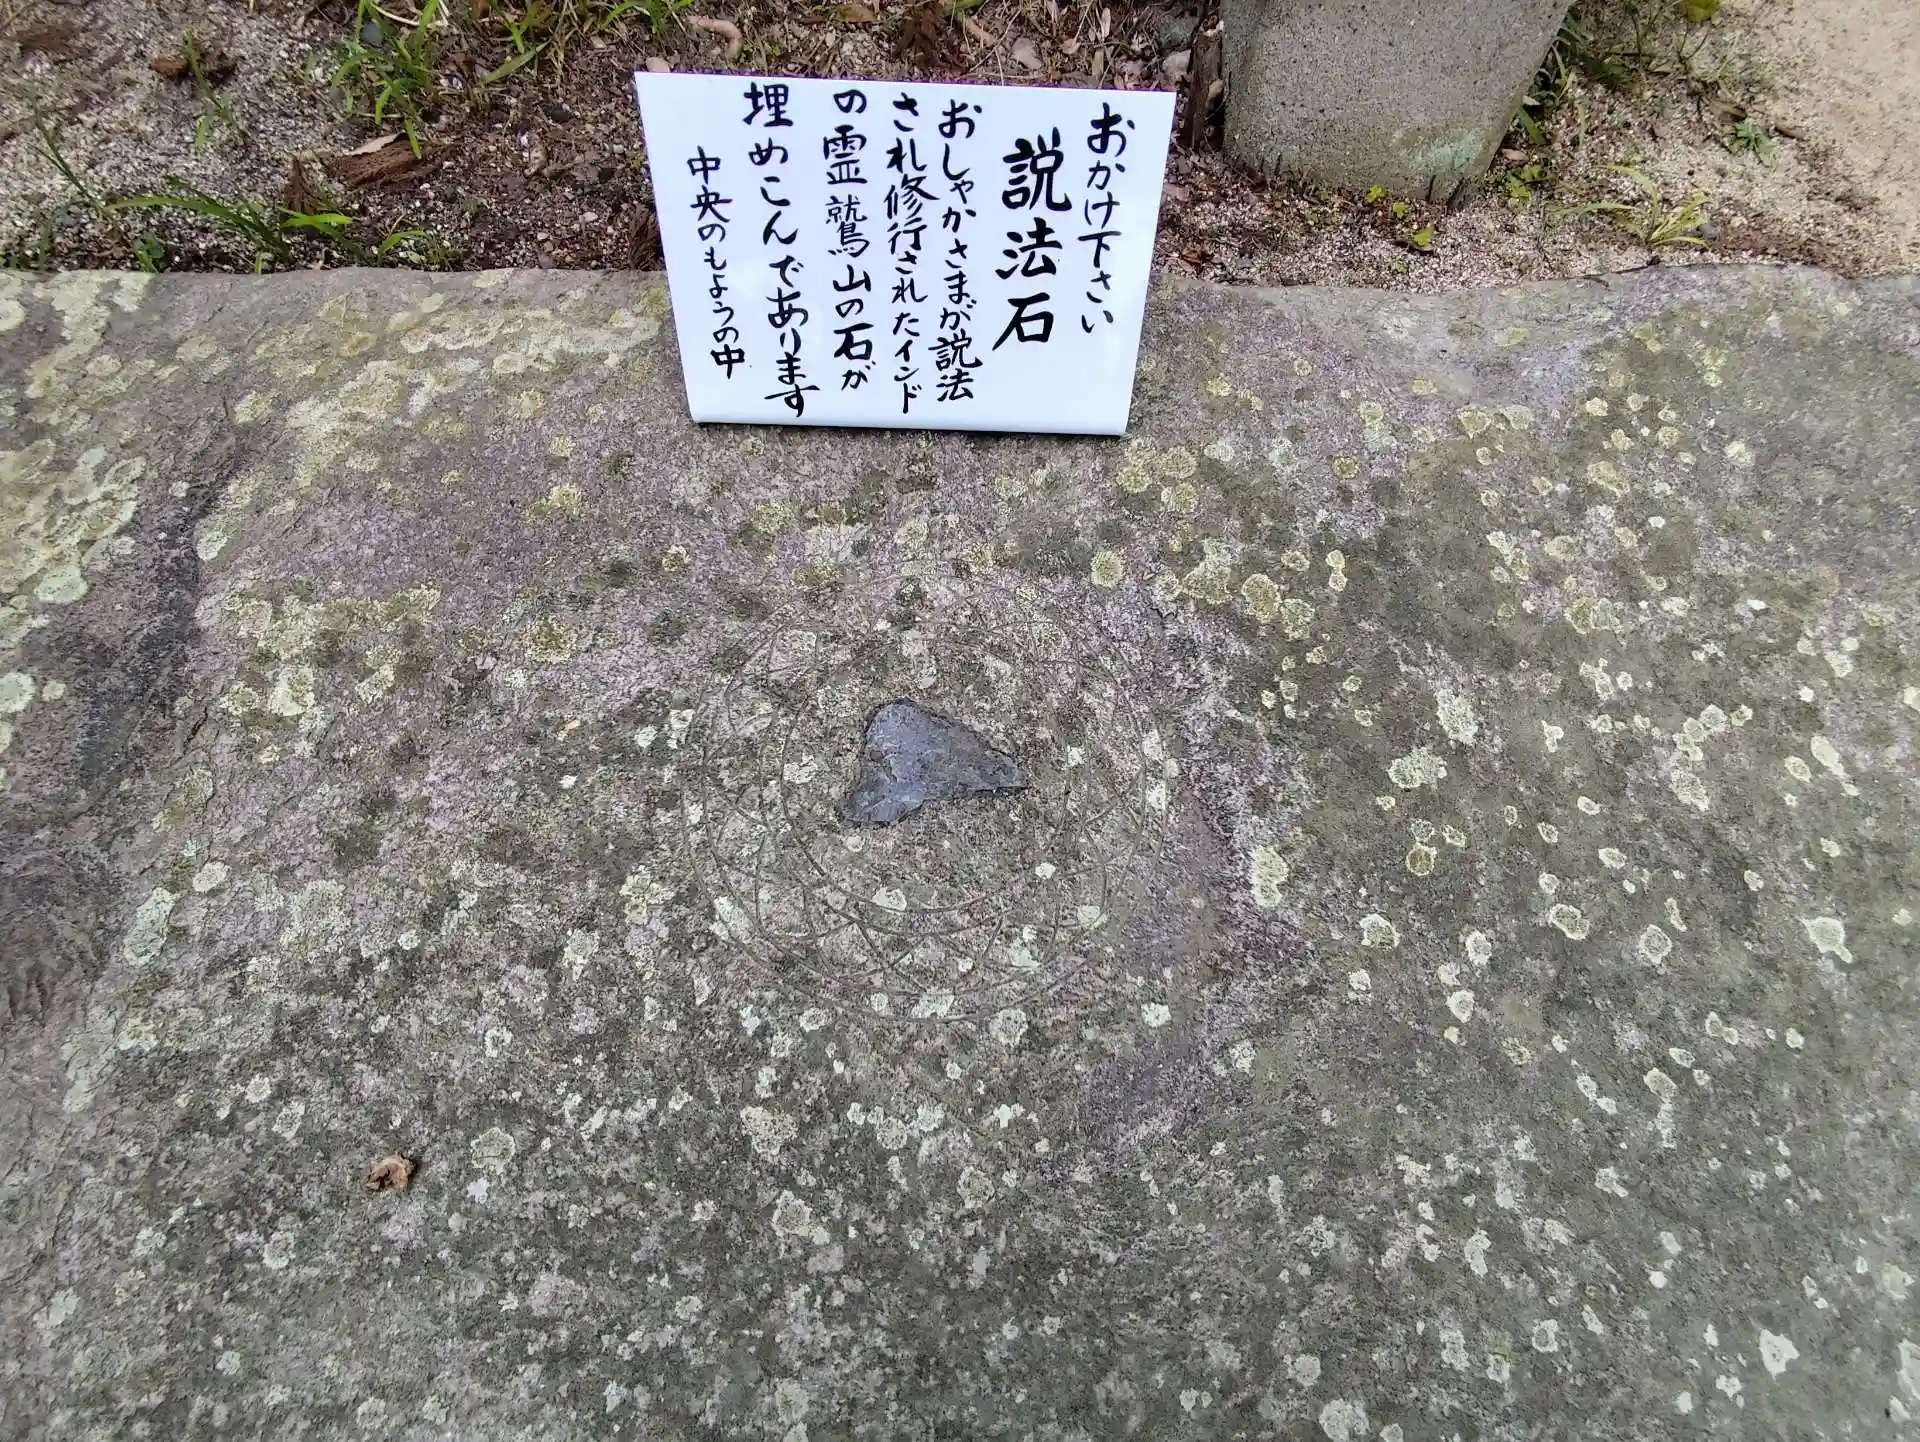 おかけ下さい
説法石
おしゃかさまが説法
され修行されたインド
の霊鷲山の石が
埋めこんであります
中央のもようの中